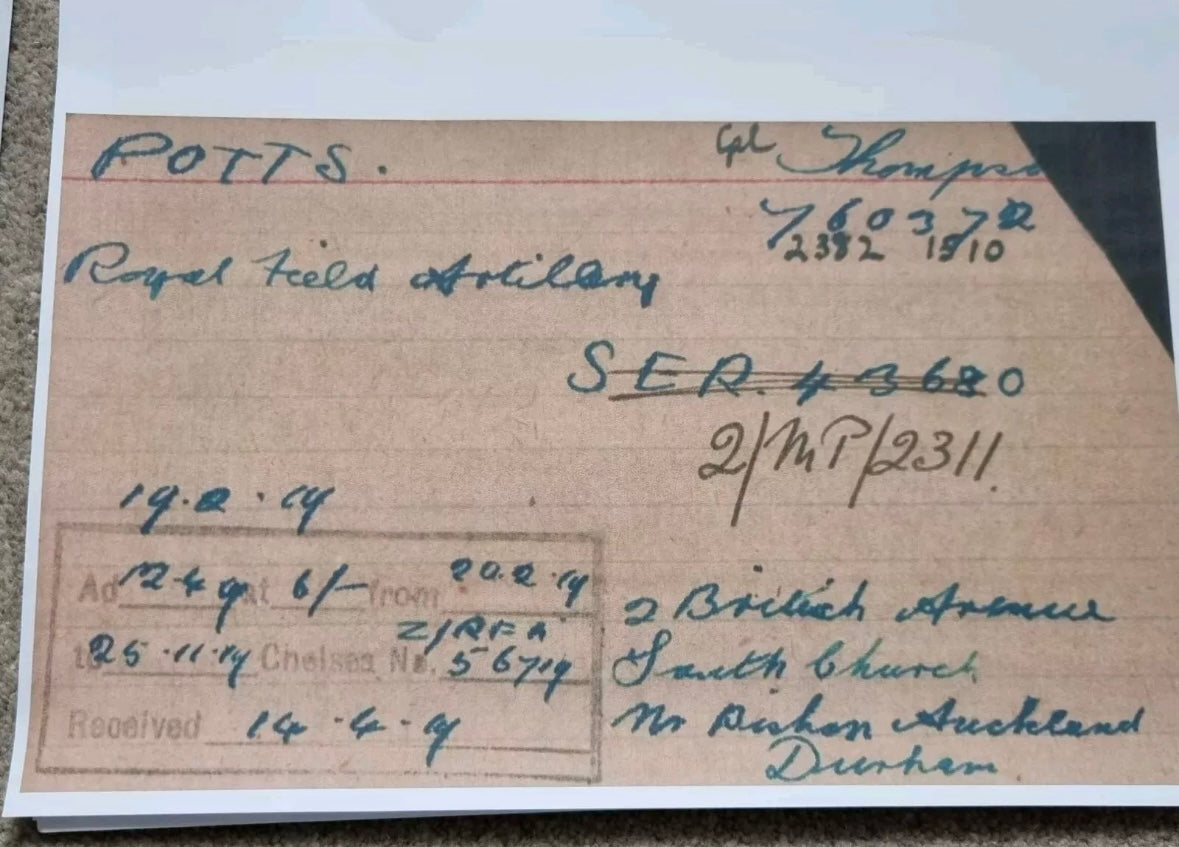 POTTS. Cpl Thompso
760372
2382 1510
Royal Field Artillery
SER. 43680
2/MP/2311.
19.2.19
Ad 12.4.19 at 6/- from 20.2.19
to 25.11.19 Chelsea No. Z/RFA 56719
Received 14.4.19
2 British Avenue
South Church
Nr Bishop Auckland
Durham